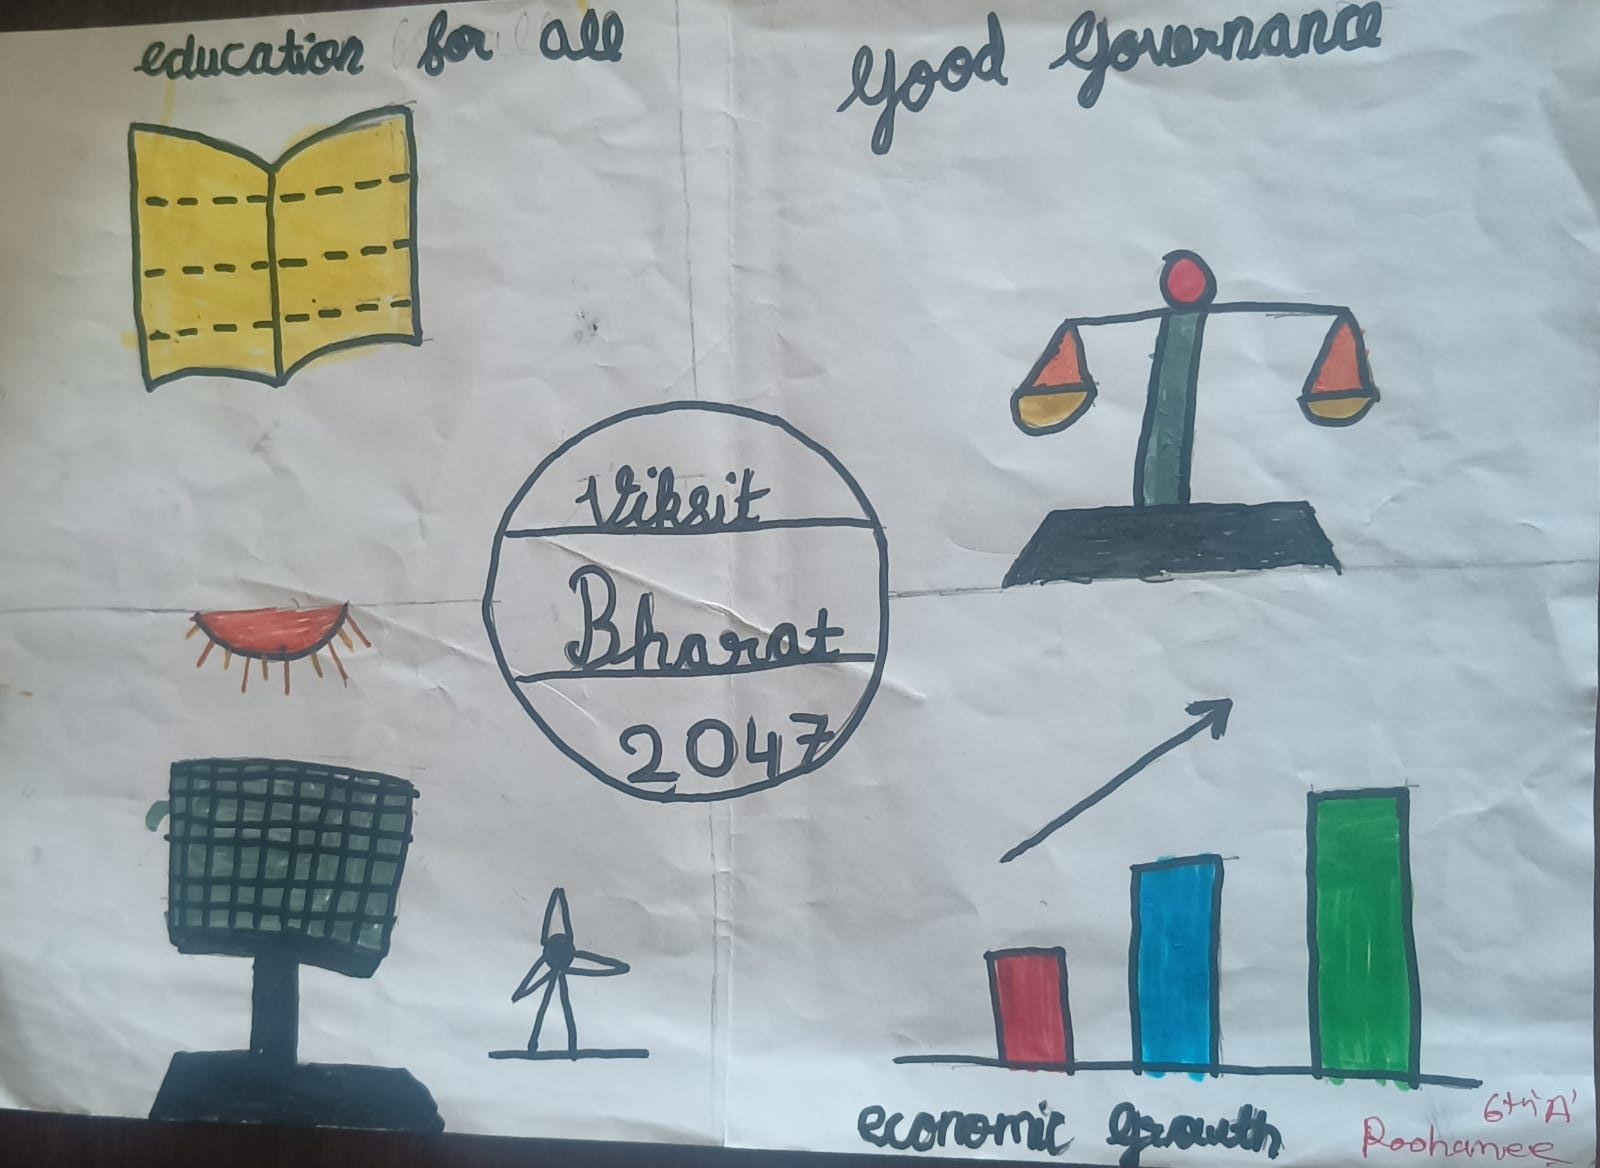 education for all
Good Governance
Viksit
Bharat
2047
economic growth
6th 'A'
Roohanee